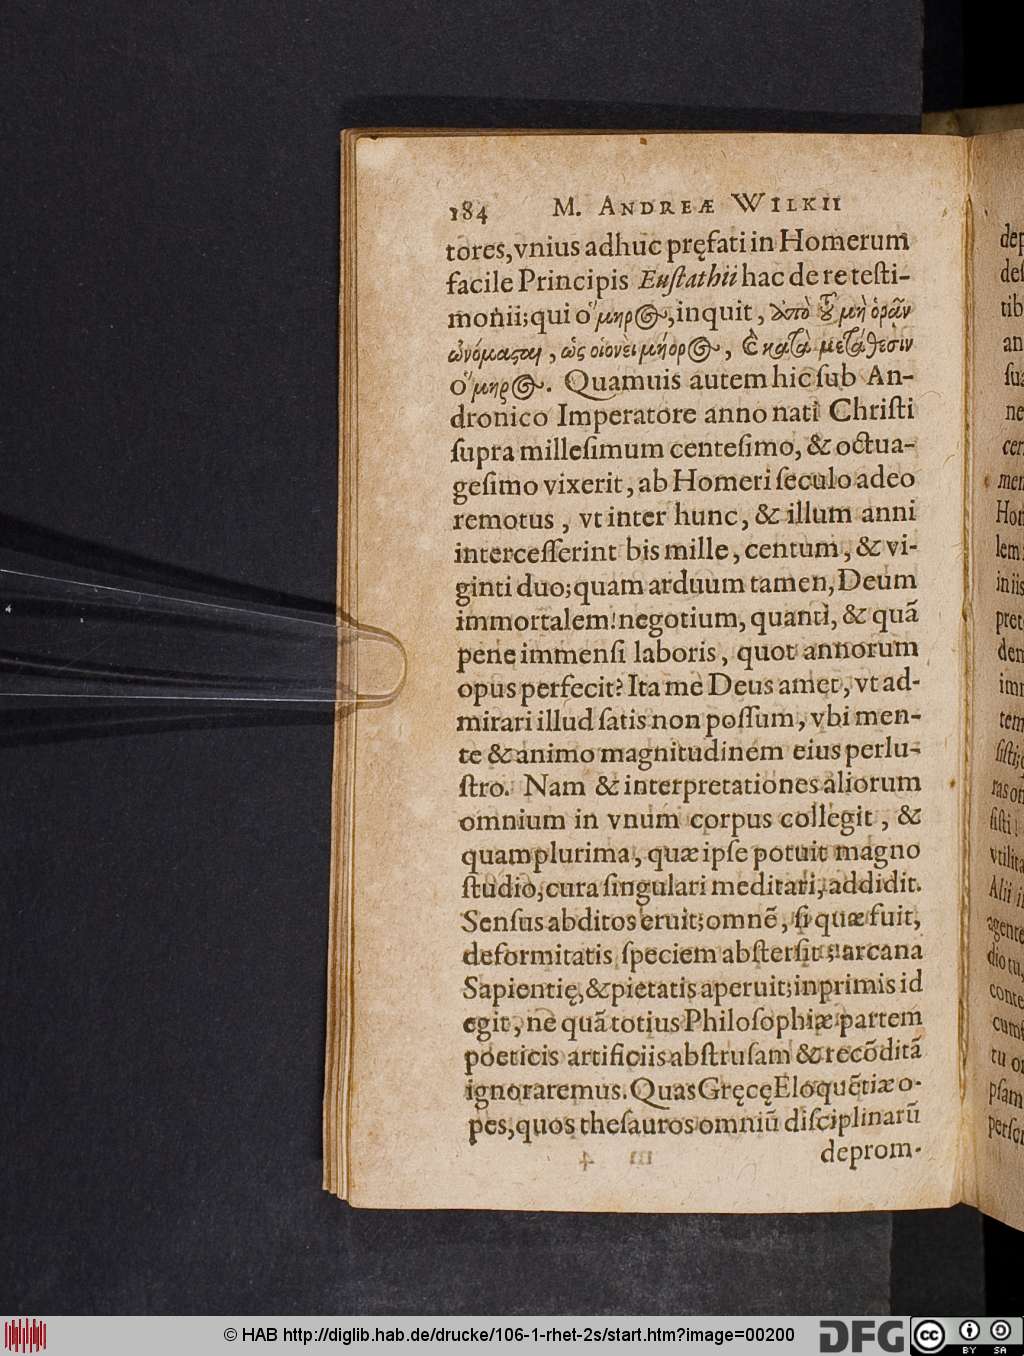 184 M. ANDREÆ WILKII
tores, vnius adhuc pręfati in Homerum
facile Principis Euſtathii hac de re teſti-
monii; qui ὅμηρος, inquit, ἀπὸ τοῦ μὴ ὁρᾶν
ὠνόμασται, ὡς οἱονεὶ μήορος, ἒ κατὰ μετάθεσιν
ὅμηρος. Quamuis autem hic ſub An-
dronico Imperatore anno nati Chriſti
ſupra milleſimum centeſimo, & octua-
geſimo vixerit, ab Homeri ſeculo adeo
remotus, vt inter hunc, & illum anni
interceſſerint bis mille, centum, & vi-
ginti duo; quam arduum tamen, Deum
immortalem! negotium, quanti, & quã
pene immenſi laboris, quot annorum
opus perfecit? Ita me Deus amet, vt ad-
mirari illud ſatis non poſſum, vbi men-
te & animo magnitudinem eius perlu-
ſtro. Nam & interpretationes aliorum
omnium in vnum corpus collegit, &
quamplurima, quæ ipſe potuit magno
ſtudio, cura ſingulari meditari, addidit.
Senſus abditos eruit; omnẽ, ſi quæ fuit,
deformitatis ſpeciem abſterſit; arcana
Sapientię, & pietatis aperuit; inprimis id
egit, ne quã totius Philoſophiæ partem
poeticis artificiis abſtruſam & recõditã
ignoraremus. Quas Gręcę Eloquẽtiæ o-
pes, quos theſauros omniũ diſciplinarũ
deprom-
dep
deſ
tib
an
ſua
ne
cer
men
Hon
lem
in iis
pret
dem
imn
tem
ſiſti;
ras of
ſiſti
vtilita
Alii i
agente
dio tu,
conte
cumſ
tu o
pſam
perſon
© HAB http://diglib.hab.de/drucke/106-1-rhet-2s/start.htm?image=00200
DFG
cc
BY SA